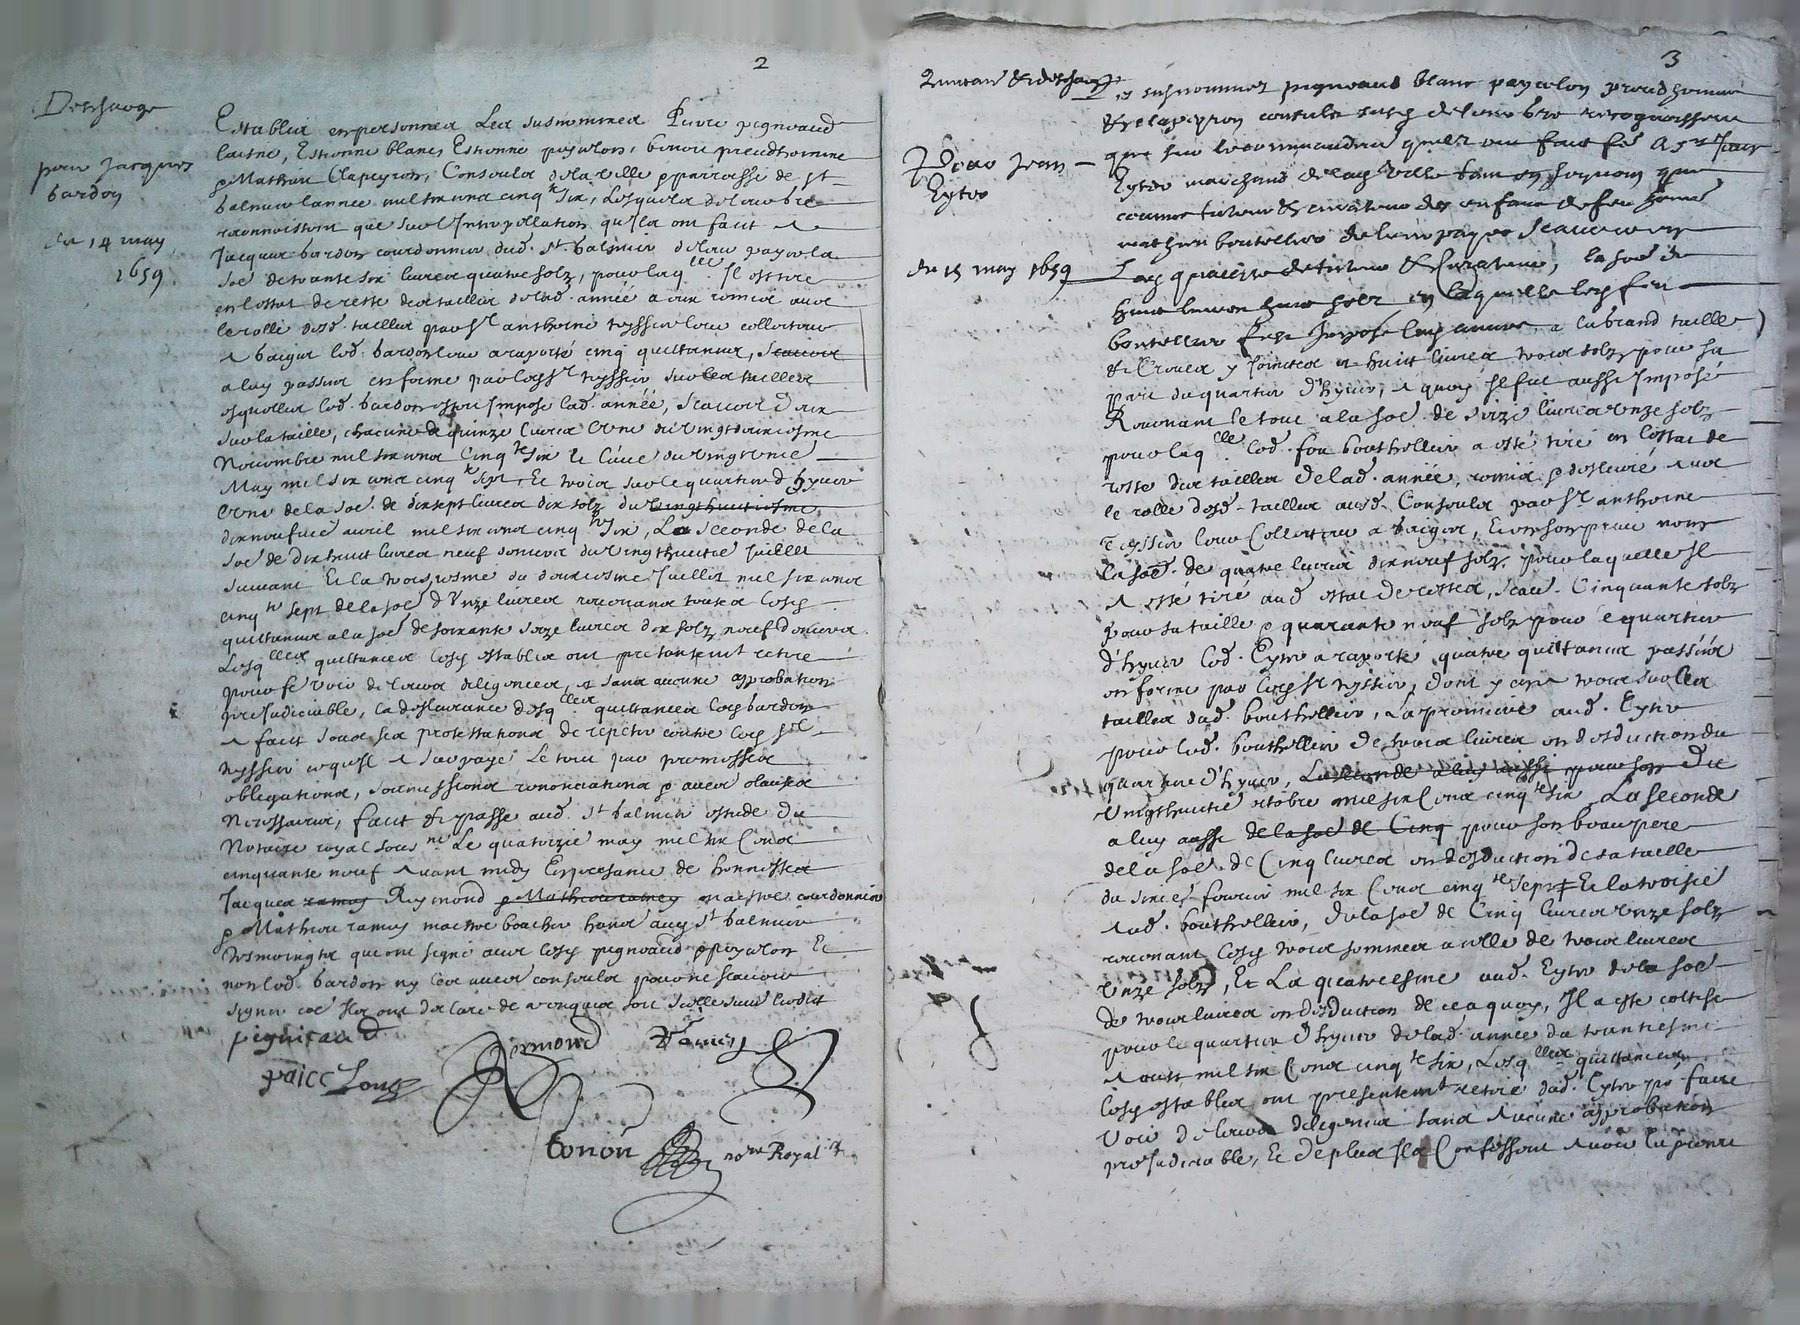 2
Descharge
pour Jacques
bardon
du 14 may
1659
Establis en personnes Les susnommes Pierre pignvaud
laisne, Estienne blanc, Estienne payrolon, benoit preudhomme
& Mathieu Clapeyron, Consulz de la ville & parroisse de st
balmier lannée mil six cens cinq.te six, Lesquelz de leur bré
recognoissent que sur l'Interpollation qu'ilz ont faict a
Jacques bardon courdonnier dud. st balmier de leur payer la
soe de trente six livres quatre solz, pour laq.lle Il est tiré
en lestat de reste des tailles de lad. année a eux remis avec
le rolle desd. tailles par sr anthoine teyssier leur collecteur
led. bardon leur a raporté cinq quittances,
a luy passées en forme par led sr teyssier sur les tailles
esquelles led. bardon estoit Imposé lad. année, scavoir deux
sur la taille, chacune de quinze livres l'une du vingt deuxiesme
Novembre mil six cens cinq.te six & l'autre du vingt
May mil six cens cinq.te sept, Et trois sur le quartier d'hyver
l'une de la soe. de dix sept livres dix solz du vingthuictiesme
dix neufvie avril mil six cens cinq.te six, La seconde de la
soe de dix huit livres neuf deniers du vingthuictie Juillet
suivant Et la troisiesme du douziesme Juillet mil six cens
cinq.te sept de la soe d'Unze livres revenans toutes lesd
quittances a la soe de soixante seize livres dix solz neuf deniers
Lesq.lles quittances lesd establis ont presentement retiré
pour se voir de leurs diligences, & sans aucune approbation
prejudiciable, la deslivrance desq.lles quittances led bardon
a faict soubz ses protestations de repeter contre led sr
teyssier ce qu'il a surpayé Le tout par promesses
obligations, soumissions renonciations & autres clauses
Necessaires, faict & passé aud. st balmier estude du
Notaire royal soubz.né Le quatorzie may mil six Cens
cinquante neuf avant midy En presance de honnestes
Jacques ramey Reymond & Mathieu ramey maistre courdonnier
& Mathieu ramey maistre boucher habitans aud st balmier
tesmoingtz qui ont signé avec lesd pignvaud & payrolon Et
non led. bardon ny les autres consulz pour ne scavoir
signer
pignvaud
paierlong
Reymond
Ramey
bonon
no.re Royal
3
Quittance & descharge
Pour Jean
Eytre
du 15 may 1659
Les susnommes pignvaud blanc payrolon preudhomme
& clapeyron consulz susd de leur bré recognoissent
que sur le commandement quilz ont faict fe a sr Jean
Eytre marchand de lad ville tant en son nom que
comme tuteur & curateur des enfans de feu
mathieu bouthellier de leur payer
lad quallité de tuteur & Curateur, la soe de
huict livres huict solz en laquelle led feu
bouthellier fust Imposé lad année a la grand taille
& Crues y Joinctes & huict livres trois solz pour sa
part du quartier d'hyver, a quoy Il fut aussi Imposé
Revenant le tout a la soe de seize livres unze solz
pour laq.lle led. feu bouthellier a esté tiré en l'estat de
reste des tailles de lad. année, remis & deslivré avec
le rolle desd. tailles ausd. Consulz par sr anthoine
Teyssier leur Collecteur
la soe. de quatre livres dix neuf solz. pour laquelle Il
a esté tiré aud estat de restes, scav. Cinquante solz
pour sa taille & quarante neuf solz pour le quartier
d'hyver led. Eytre a raporté quatre quittances passées
en forme par led sr teyssier, dont y en a trois sur les
tailles dud. bouthellier, La premiere aud. Eytre
pour led. bouthellier de trois livres en deduction du
quartier d'hyver, La seconde a luy aussi pour son du
Vingthuictie octobre mil six Cens cinq.te six La seconde
a luy aussi de la soe de Cinq pour son beaupere
de la soe. de Cinq livres en deduction de sa taille
du fevrier mil six Cens cinq.te sept Et la troisie
aud. bouthellier, de la soe de Cinq livres unze solz
revenant lesd trois sommes a celle de treize livres
Unze solz, Et La quatriesme aud. Eytre de la soe
de trois livres en deduction de ce a quoy, Il a esté cottisé
pour le quartier d'hyver de lad. année du trentiesme
Aoust mil six Cens cinq.te six, Lesq.lles quittances
lesd establis ont presentement retiré dud. Eytre po.r faire
Voir de leurs diligences sans aucune approbation
prejudiciable, Et de plus Ilz Confessent avoir